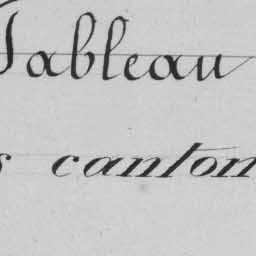 Tableau
s canton